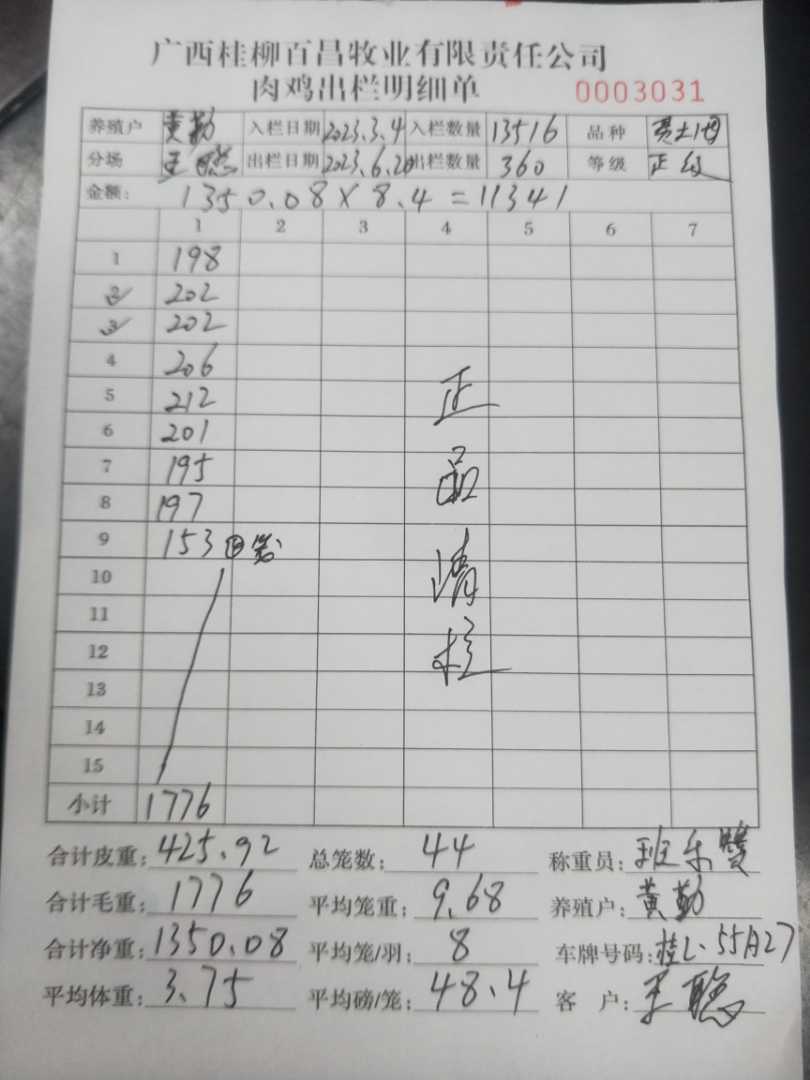 广西桂柳百昌牧业有限责任公司
肉鸡出栏明细单 0003031
养殖户 黄勤 入栏日期 2023.3.4 入栏数量 13516 品种
分场 王聪 出栏日期 2023.6.20 出栏数量 360 等级 正级
金额: 1350.08×8.4=11341
1 2 3 4 5 6 7
1 198
2 202
3 202
4 206
5 212
6 201
7 195
8 197
9 153
10
11
12
13
14
15
正品清栏
小计 1776
合计皮重: 425.92 总笼数: 44 称重员: 班
合计毛重: 1776 平均笼重: 9.68 养殖户: 黄勤
合计净重: 1350.08 平均笼/羽: 8 车牌号码: 桂L·55A27
平均体重: 3.75 平均磅/笼: 48.4 客 户: 王聪